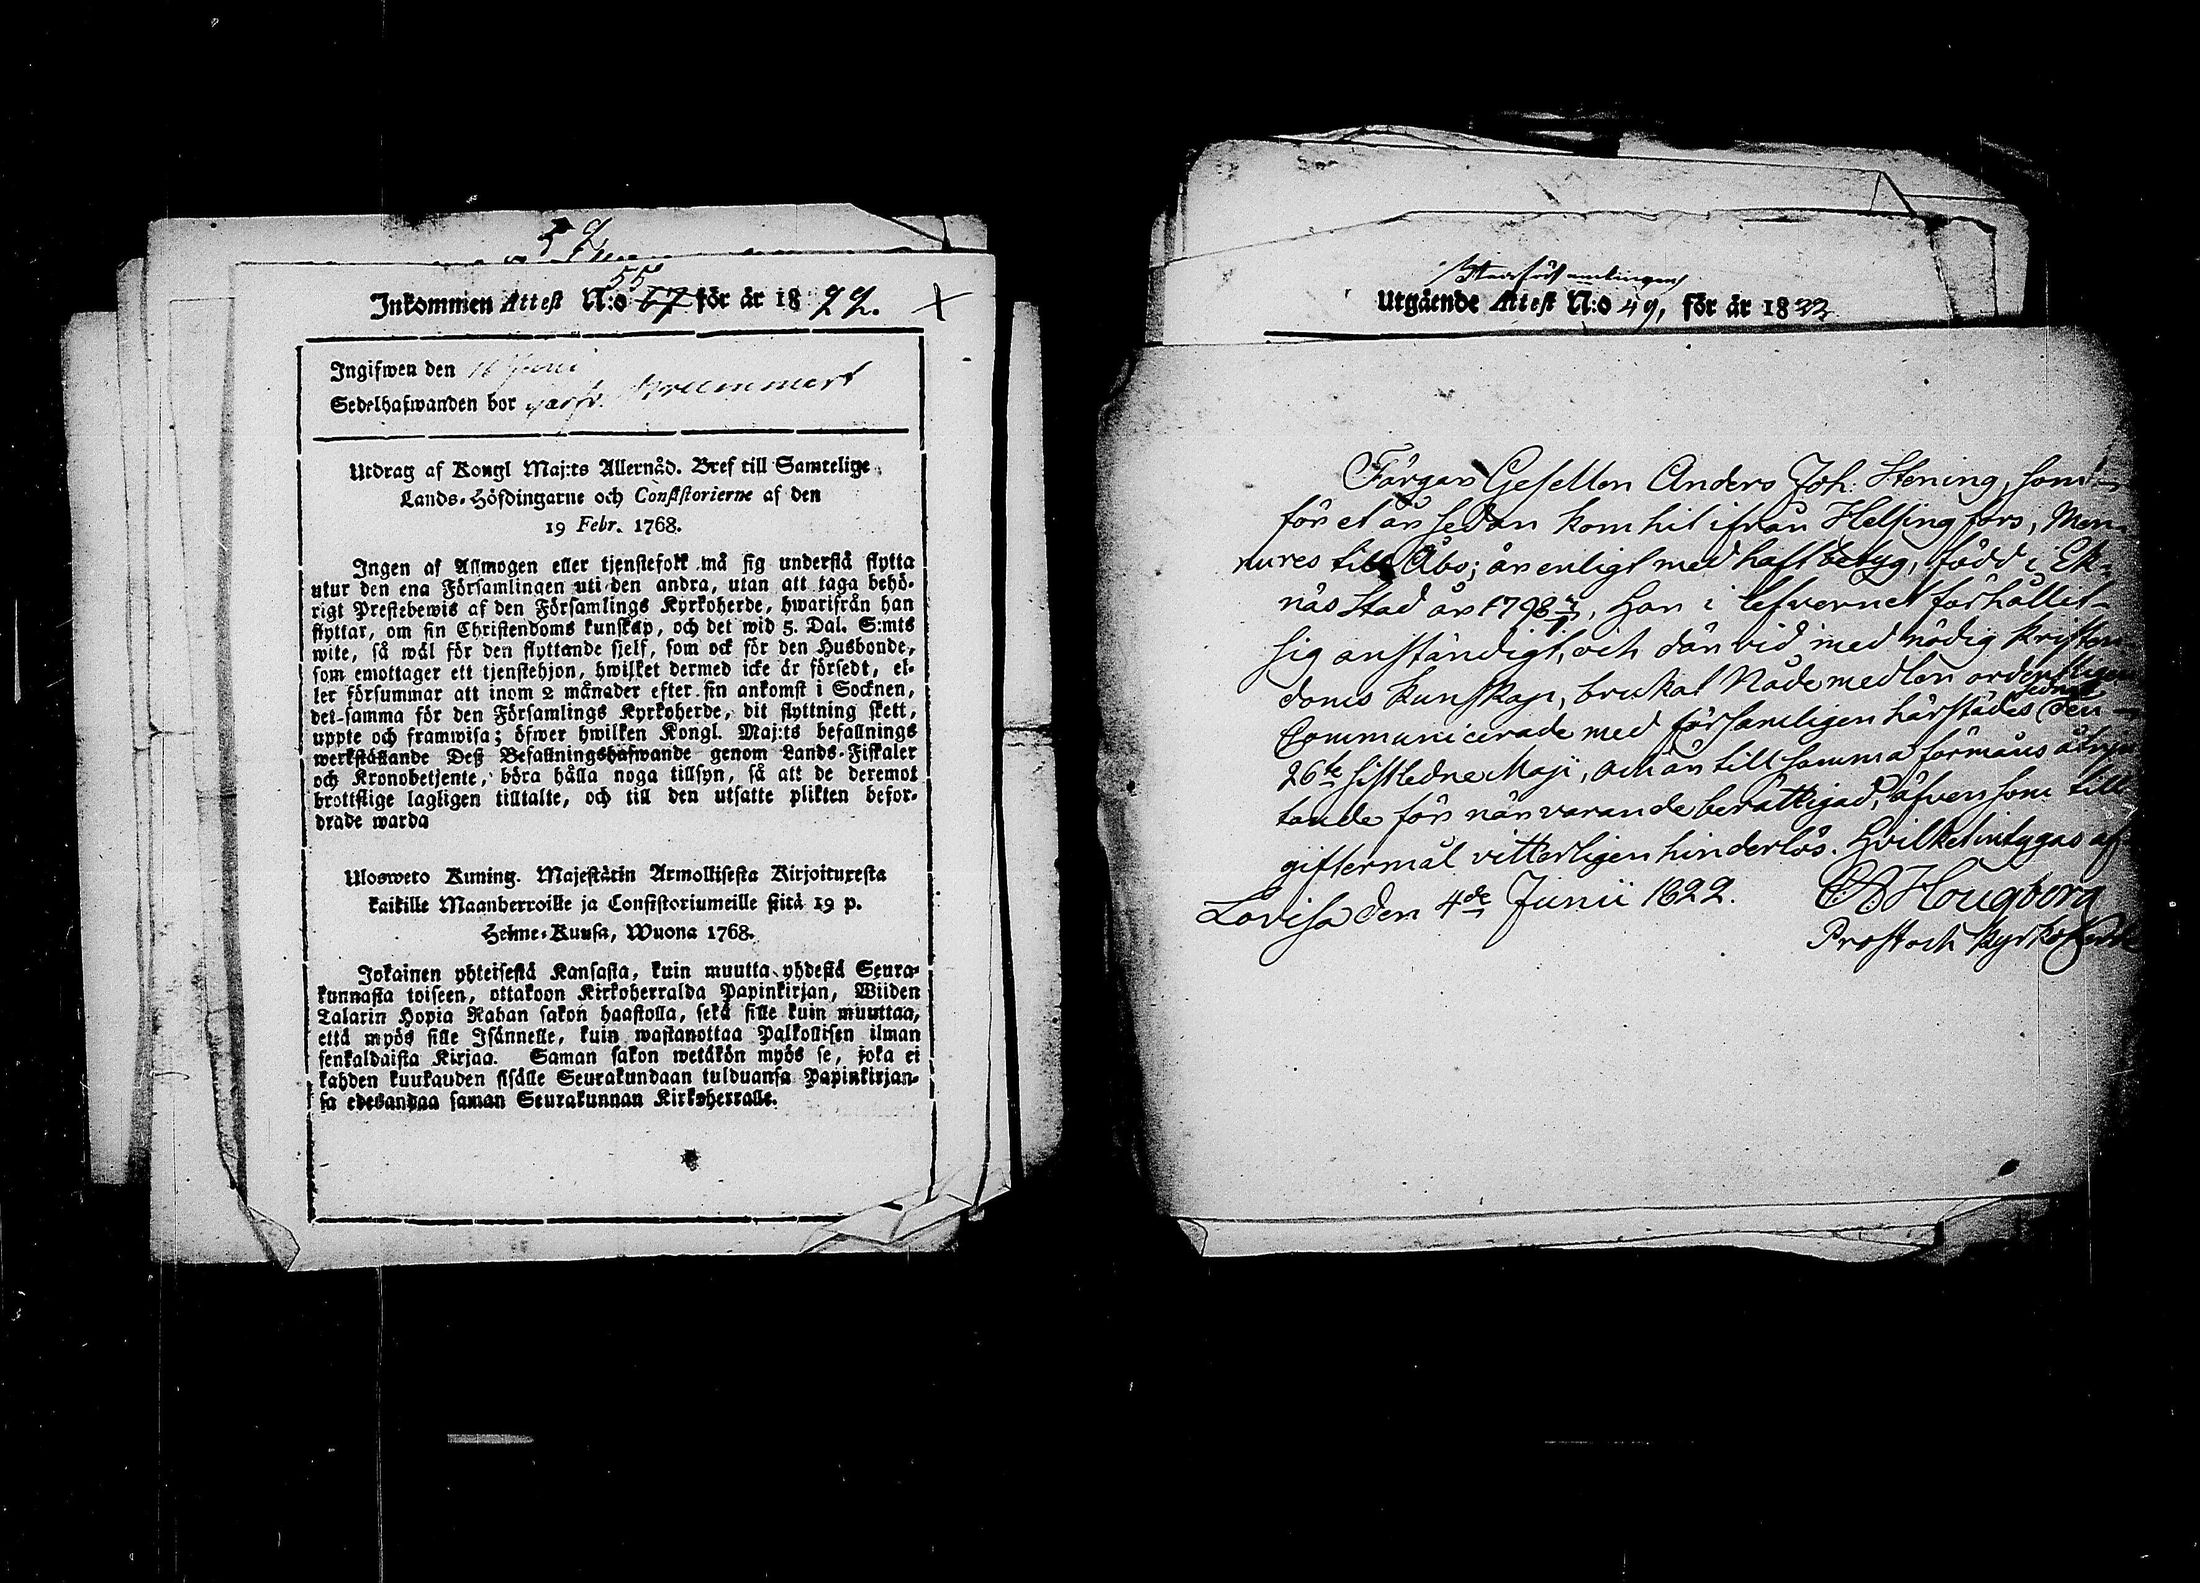 52
55
Inkommen Attest N:o 67 för år 1822. X
Ingifwen den 16 Juni
Sedelhafwanden bor
Utdrag af Kongl Maj:ts Allernåd. Bref till Samtelige
Lands-Höfdingarne och Consistorierne af den
19 Febr. 1768.
Ingen af Allmogen eller tjenstefolk må sig understå flytta
utur den ena Församlingen uti den andra, utan att taga behö-
rigt Prestebewis af den Församlings Kyrkoherde, hwarifrån han
flyttar, om sin Christendoms kunskap, och det wid 5. Dal. S:mts
wite, så wäl för den flyttande sielf, som ock för den Husbonde,
som emottager ett tjenstehjon, hwilket dermed icke är försedt, el-
ler försummar att inom 2 månader efter sin ankomst i Socknen,
det-samma för den Församlings Kyrkoherde, dit flyttning skett,
uppte och framwisa; öfwer hwilken Kongl. Maj:ts befallnings
werkställande Deß Befallningshafwande genom Lands-Fiskaler
och Kronobetjente, böra hålla noga tillsyn, så att de deremot
brottslige lagligen tilltalte, och till den utsatte plikten befor-
drade warda
Ulosweto Kuning. Majestätin Armollisesta Kirjoituxesta
kaikille Maanherroille ja Consistoriumeille siitä 19 p.
Helme-Kuusa, Wuona 1768.
Jokainen yhteisestä Kansasta, kuin muutta yhdestä Seura-
kunnasta toiseen, ottakoon Kirkoherralda Papinkirjan, Wiiden
Talarin Hopia Rahan sakon haastolla, sekä sille kuin muuttaa,
että myös sille Isännelle, kuin wastanottaa Palkollisen ilman
senkaldaista Kirjaa. Saman sakon wetäkön myös se, joka ei
kahden kuukauden sisälle Seurakundaan tulduansa Papinkirjan-
sa edesandaa saman Seurakunnan Kirkoherralle.
Utgående Attest N:o 49, för år 1822
Färgar Gesellen Anders Joh: Stening, som
för et år sedan kom hit ifrån Helsingfors, Men
nu res till Åbo; är enligt med haft betyg, född i Ek-
näs Stad år 1798, Har i lefvernet förhållit
sig anständigt, och där vid, med nödig kristen
doms kunskap, brukat Nådemedlen ordentligen
Communicerade med församligen härstädes sednast den
26te sistledne Maji, och är till samma förmåns åtnju
tande för när varande berättigad, äfven som till
giftermål vitterligen hinderlös. Hvilket intygas af
Lovisa den 4de Junii 1822. Hougberg
Prost och Kyrkoherde